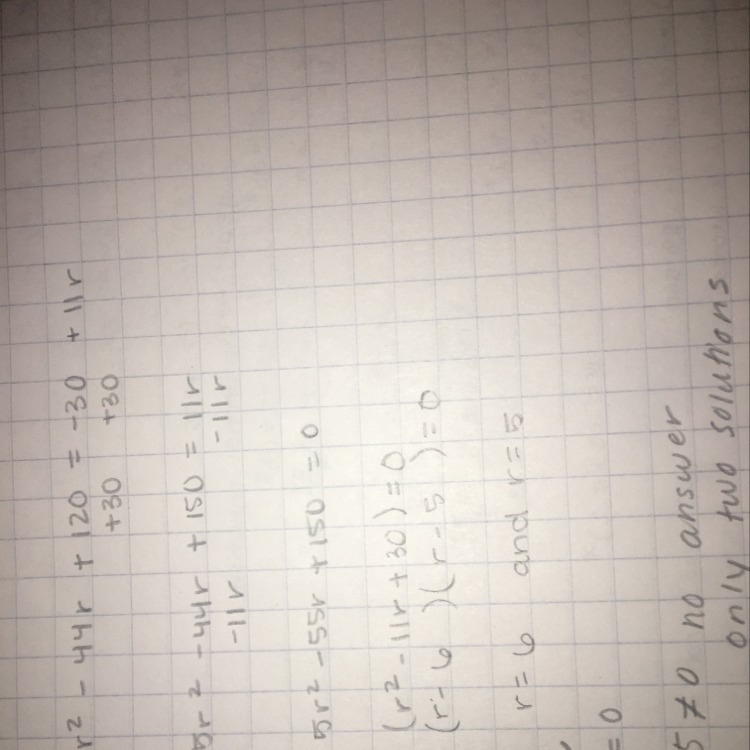 r² - 44r + 120 = -30 + 11r
+30 +30
5r² - 44r + 150 = 11r
-11r -11r
5r² - 55r + 150 = 0
(r² - 11r + 30) = 0
(r - 6 )(r - 5 ) = 0
r = 6 and r = 5
= 0
5 ≠ 0 no answer
only two solutions